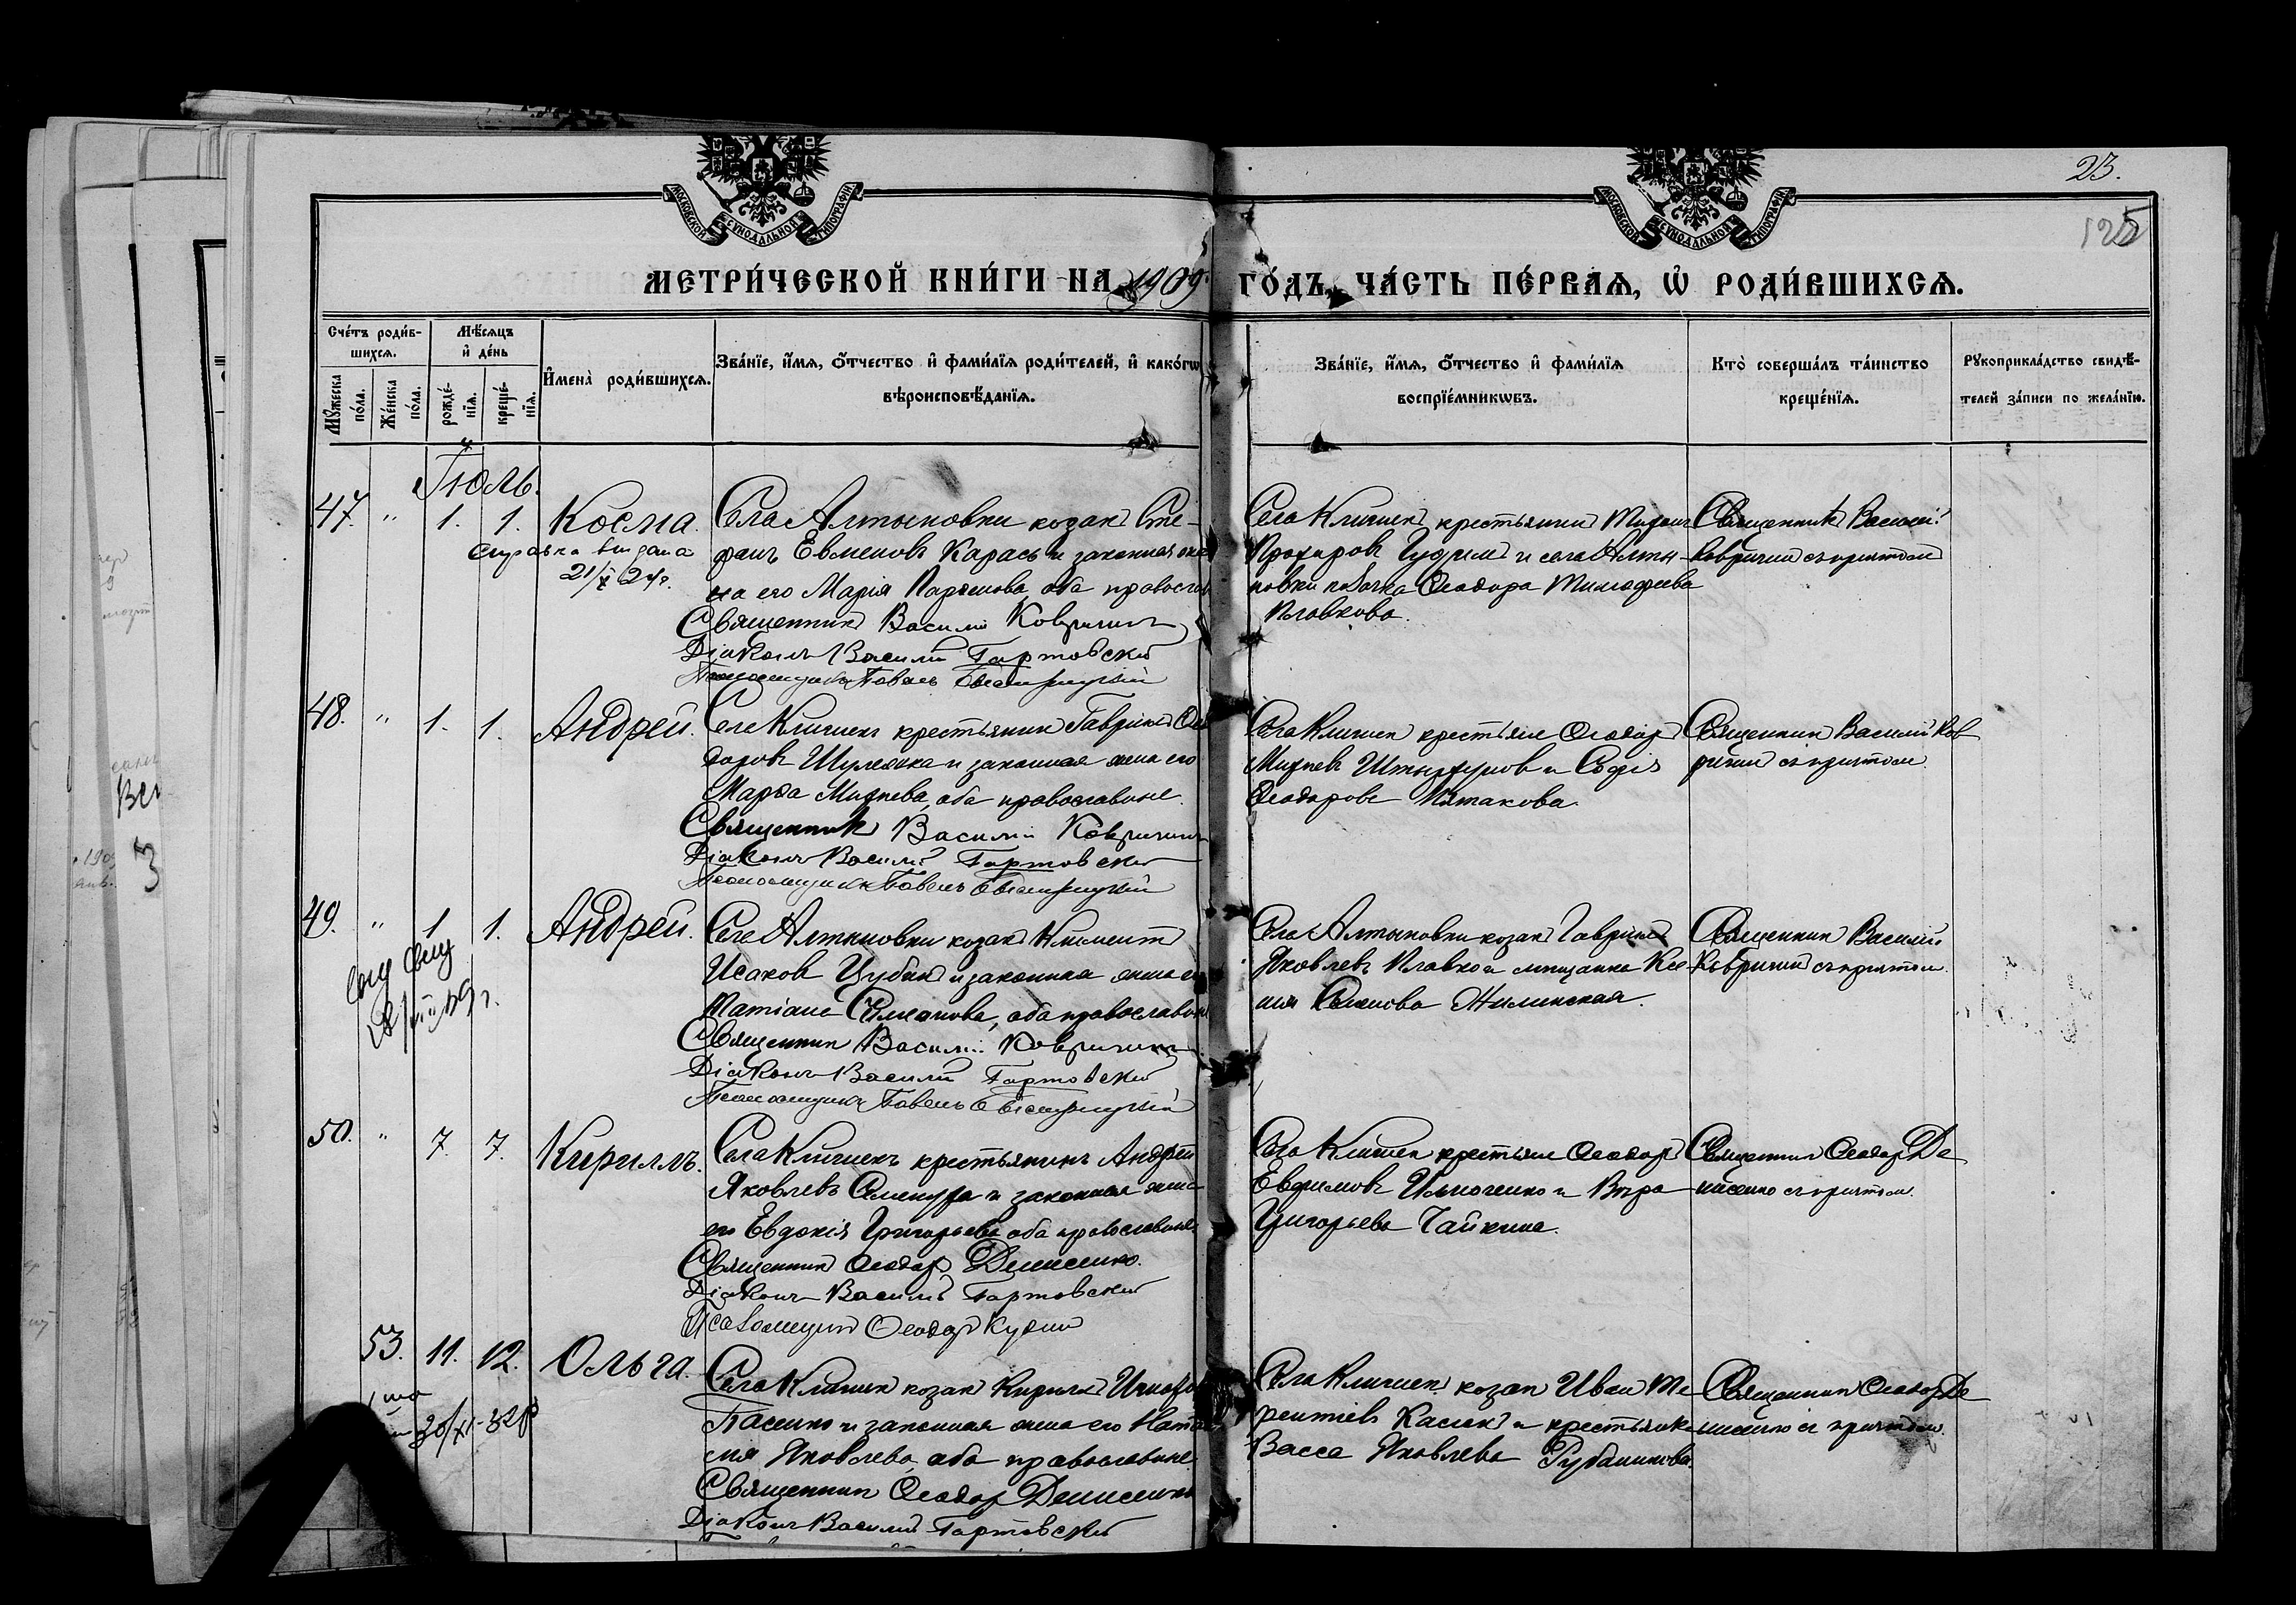 МОСКОВСКОЙ СѴНОДАЛЬНОЙ ТИПОГРАФІИ
МОСКОВСКОЙ СѴНОДАЛЬНОЙ ТИПОГРАФІИ
23.
125
МЕТРИ́ЧЕСКОЙ КНИ́ГИ НА 1909 ГО́ДЪ, ЧА́СТЬ ПЕ́РВАЯ, Ѡ҆ РОДИ́ВШИХСЯ.
Сче́тъ роди́вшихся.
Мꙋ́жеска по́ла.
Же́нска по́ла.
Мѣ́сяцъ и҆ де́нь
рожде́нїя.
креще́нїя.
И҆мена̀ роди́вшихся.
Зва́нїе, и҆́мя, ѻ҆́тчество и҆ фами́лїя роди́телей, и҆ како́гѡ
вѣроисповѣ́данїя.
Зва́нїе, и҆́мя, ѻ҆́тчество и҆ фами́лїя
воспрїе́мникѡвъ.
Кто̀ соверша́лъ та́инство
креще́нїя.
Рꙋкоприкла́дство свидѣ́-
телей за́писи по жела́нїю.
Іюль.
47. " 1. 1. Косма.
справка выдана
21/X 24г.
Села Алтыновки козакъ Сте-
фанъ Евменовъ Карась и законная же
на его Марія, оба правосла
Священникъ Василій Ковригинъ
Діаконъ Василій Гартовскій
Псаломщикъ Павелъ
Села Клишекъ крестьянинъ
Прохоровъ и села Алты-
новки козачка Ѳеодора Тимофеева
Плавкова.
Священникъ Василій
Ковригинъ съ причтомъ
48. " 1. 1. Андрей.
Села Клишекъ крестьянинъ Гавріилъ Ѳео
доровъ Шулежка и законная жена его
Марѳа Михеева, оба православные.
Священникъ Василій Ковригинъ
Діаконъ Василій Гартовскій
Псаломщикъ Павелъ
Села Клишекъ крестьяне Ѳеодоръ
Михеевъ и Софія
Ѳеодорова Пятакова.
Священникъ Василій Ков
ригинъ съ причтомъ.
49. " 1 1. Андрей.
Села Алтыновки козакъ Климентъ
Исаковъ Цубанъ и законная жена его
Татіана Симеонова, оба православн
Священникъ Василій Ковригинъ
Діаконъ Василій Гартовскій
Псаломщикъ Павелъ
Села Алтыновки козакъ Гавріилъ
Яковлевъ Плавко и мещанка Ксе-
нія Жилинская.
Священникъ Василій
Ковригинъ съ причтомъ.
50. " 7. 7. Кириллъ.
Села Клишекъ крестьянинъ Андрей
Яковлевъ и законная жена
его Евдокія Григорьева оба православные
Священникъ Ѳеодоръ Денисенко.
Діаконъ Василій Гартовскій
Псаломщикъ Ѳеодоръ Кудинъ
Села Клишекъ крестьяне Ѳеодоръ
Евфимовъ Ильюченко и Вѣра
Григорьева Чайкина.
Священникъ Ѳеодоръ Де
нисенко съ причтомъ.
53. 11. 12. Ольга.
30/XI-32р
Села Клишекъ козакъ Кириллъ
Пасенко и законная жена его Ната
лія Яковлева, оба православные.
Священникъ Ѳеодоръ Денисенко
Діаконъ Василій Гартовскій
Села Клишекъ козакъ Иванъ Те-
рентіевъ Касакъ и крестьянка
Васса Яковлева Рубанникова.
Священникъ Ѳеодоръ Де
нисенко съ причтомъ.